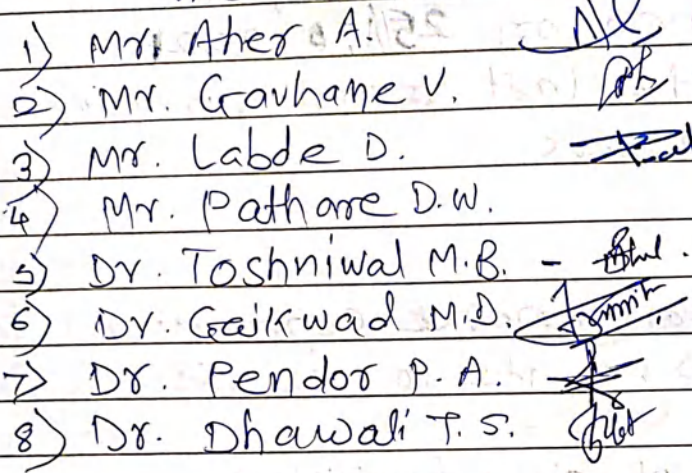 1) Mr. Aher A.
2) Mr. Gavhane V.
3) Mr. Labde D.
4) Mr. Pathare D.W.
5) Dr. Toshniwal M.B. -
6) Dr. Gaikwad M.D.
7) Dr. Pendor P.A.
8) Dr. Dhawali T.S.